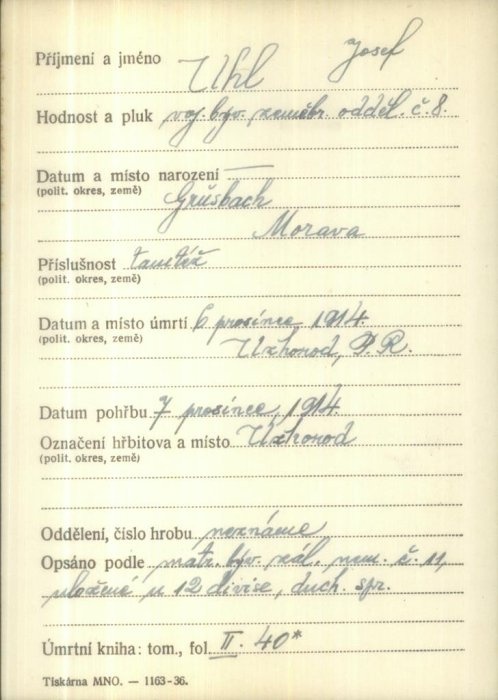 Příjmení a jméno Uhl Josef
Hodnost a pluk voj. býv. zeměbr. odděl. č. 8.
Datum a místo narození —
(polit. okres, země)
Grusbach
Morava
Příslušnost tamtéž
(polit. okres, země)
Datum a místo úmrtí 6 prosince 1914.
(polit. okres, země)
Užhorod, P. R.
Datum pohřbu 7 prosince, 1914
Označení hřbitova a místo Užhorod
(polit. okres, země)
Oddělení, číslo hrobu neznámé
Opsáno podle matr. býv. zál. nem. č. 11,
uložené u 12 divise, duch. spr.
Úmrtní kniha: tom., fol. II. 40*
Tiskárna MNO. — 1163-36.